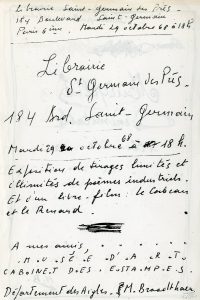 Librairie Saint-Germain des Prés
184 Boulevard Saint-Germain
Paris 6ème. Mardi 29 octobre 68 à 18h.
Librairie
St Germain des Prés
184 Bvd. Saint-Germain
Mardi 29 octobre 68 à 18h.
Exposition de tirages limités et
illimités de poèmes industriels.
Et d'un livre-film: le Corbeau
et le Renard.
A mes amis, . . . . . . .
. M.U.S.É.E D'.A.R.T.
CABINET D.ES. ESTAMPES.
Département des Aigles. M. Broodthaers